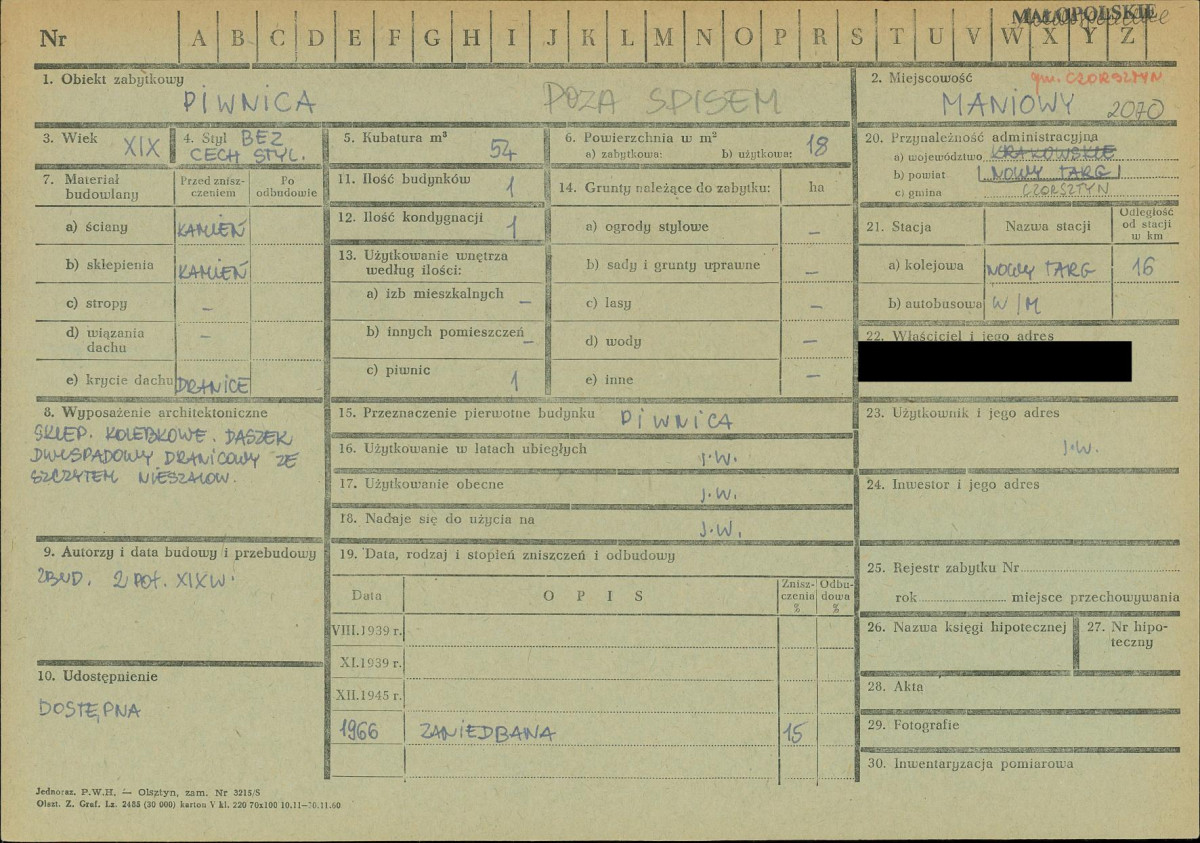 MAŁOPOLSKIE
Nr A B C D E F G H I J K L M N O P R S T U V W X Y Z
1. Obiekt zabytkowy
PIWNICA POZA SPISEM
2. Miejscowość gm. CZORSZTYN
MANIOWY 2070
3. Wiek XIX
4. Styl BEZ
CECH STYL.
5. Kubatura m³ 54
6. Powierzchnia w m²
a) zabytkowa: b) użytkowa: 18
7. Materiał budowlany
Przed znisz-
czeniem
Po
odbudowie
a) ściany KAMIEŃ
b) sklepienia KAMIEŃ
c) stropy –
d) wiązania
dachu –
e) krycie dachu DRANICE
8. Wyposażenie architektoniczne
SKLEP. KOLEBKOWE. DASZEK
DWUSPADOWY DRANICOWY ZE
SZCZYTEM NIESZALOW.
9. Autorzy i data budowy i przebudowy
ZBUD. 2 POŁ. XIX W.
10. Udostępnienie
DOSTĘPNA
11. Ilość budynków 1
12. Ilość kondygnacji 1
13. Użytkowanie wnętrza
według ilości:
a) izb mieszkalnych –
b) innych pomieszczeń –
c) piwnic 1
14. Grunty należące do zabytku: ha
a) ogrody stylowe –
b) sady i grunty uprawne –
c) lasy –
d) wody –
e) inne –
15. Przeznaczenie pierwotne budynku PIWNICA
16. Użytkowanie w latach ubiegłych J.W.
17. Użytkowanie obecne J.W.
18. Nadaje się do użycia na J.W.
19. Data, rodzaj i stopień zniszczeń i odbudowy
Data
O P I S
Znisz-
czenia
%
Odbu-
dowa
%
VIII.1939 r.
XI.1939 r.
XII.1945 r.
1966 ZANIEDBANA 15
20. Przynależność administracyjna
a) województwo KRAKOWSKIE
b) powiat NOWY TARG
c) gmina CZORSZTYN
21. Stacja
Nazwa stacji
Odległość
od stacji
w km
a) kolejowa NOWY TARG 16
b) autobusowa W/M
22. Właściciel i jego adres
23. Użytkownik i jego adres
J.W.
24. Inwestor i jego adres
25. Rejestr zabytku Nr
rok miejsce przechowywania
26. Nazwa księgi hipotecznej
27. Nr hipo-
teczny
28. Akta
29. Fotografie
30. Inwentaryzacja pomiarowa
Jednoraz. P.W.H. — Olsztyn, zam. Nr 3215/S
Olszt. Z. Graf. Lz. 2485 (30 000) karton V kl. 220 70x100 10.11—30.11.60